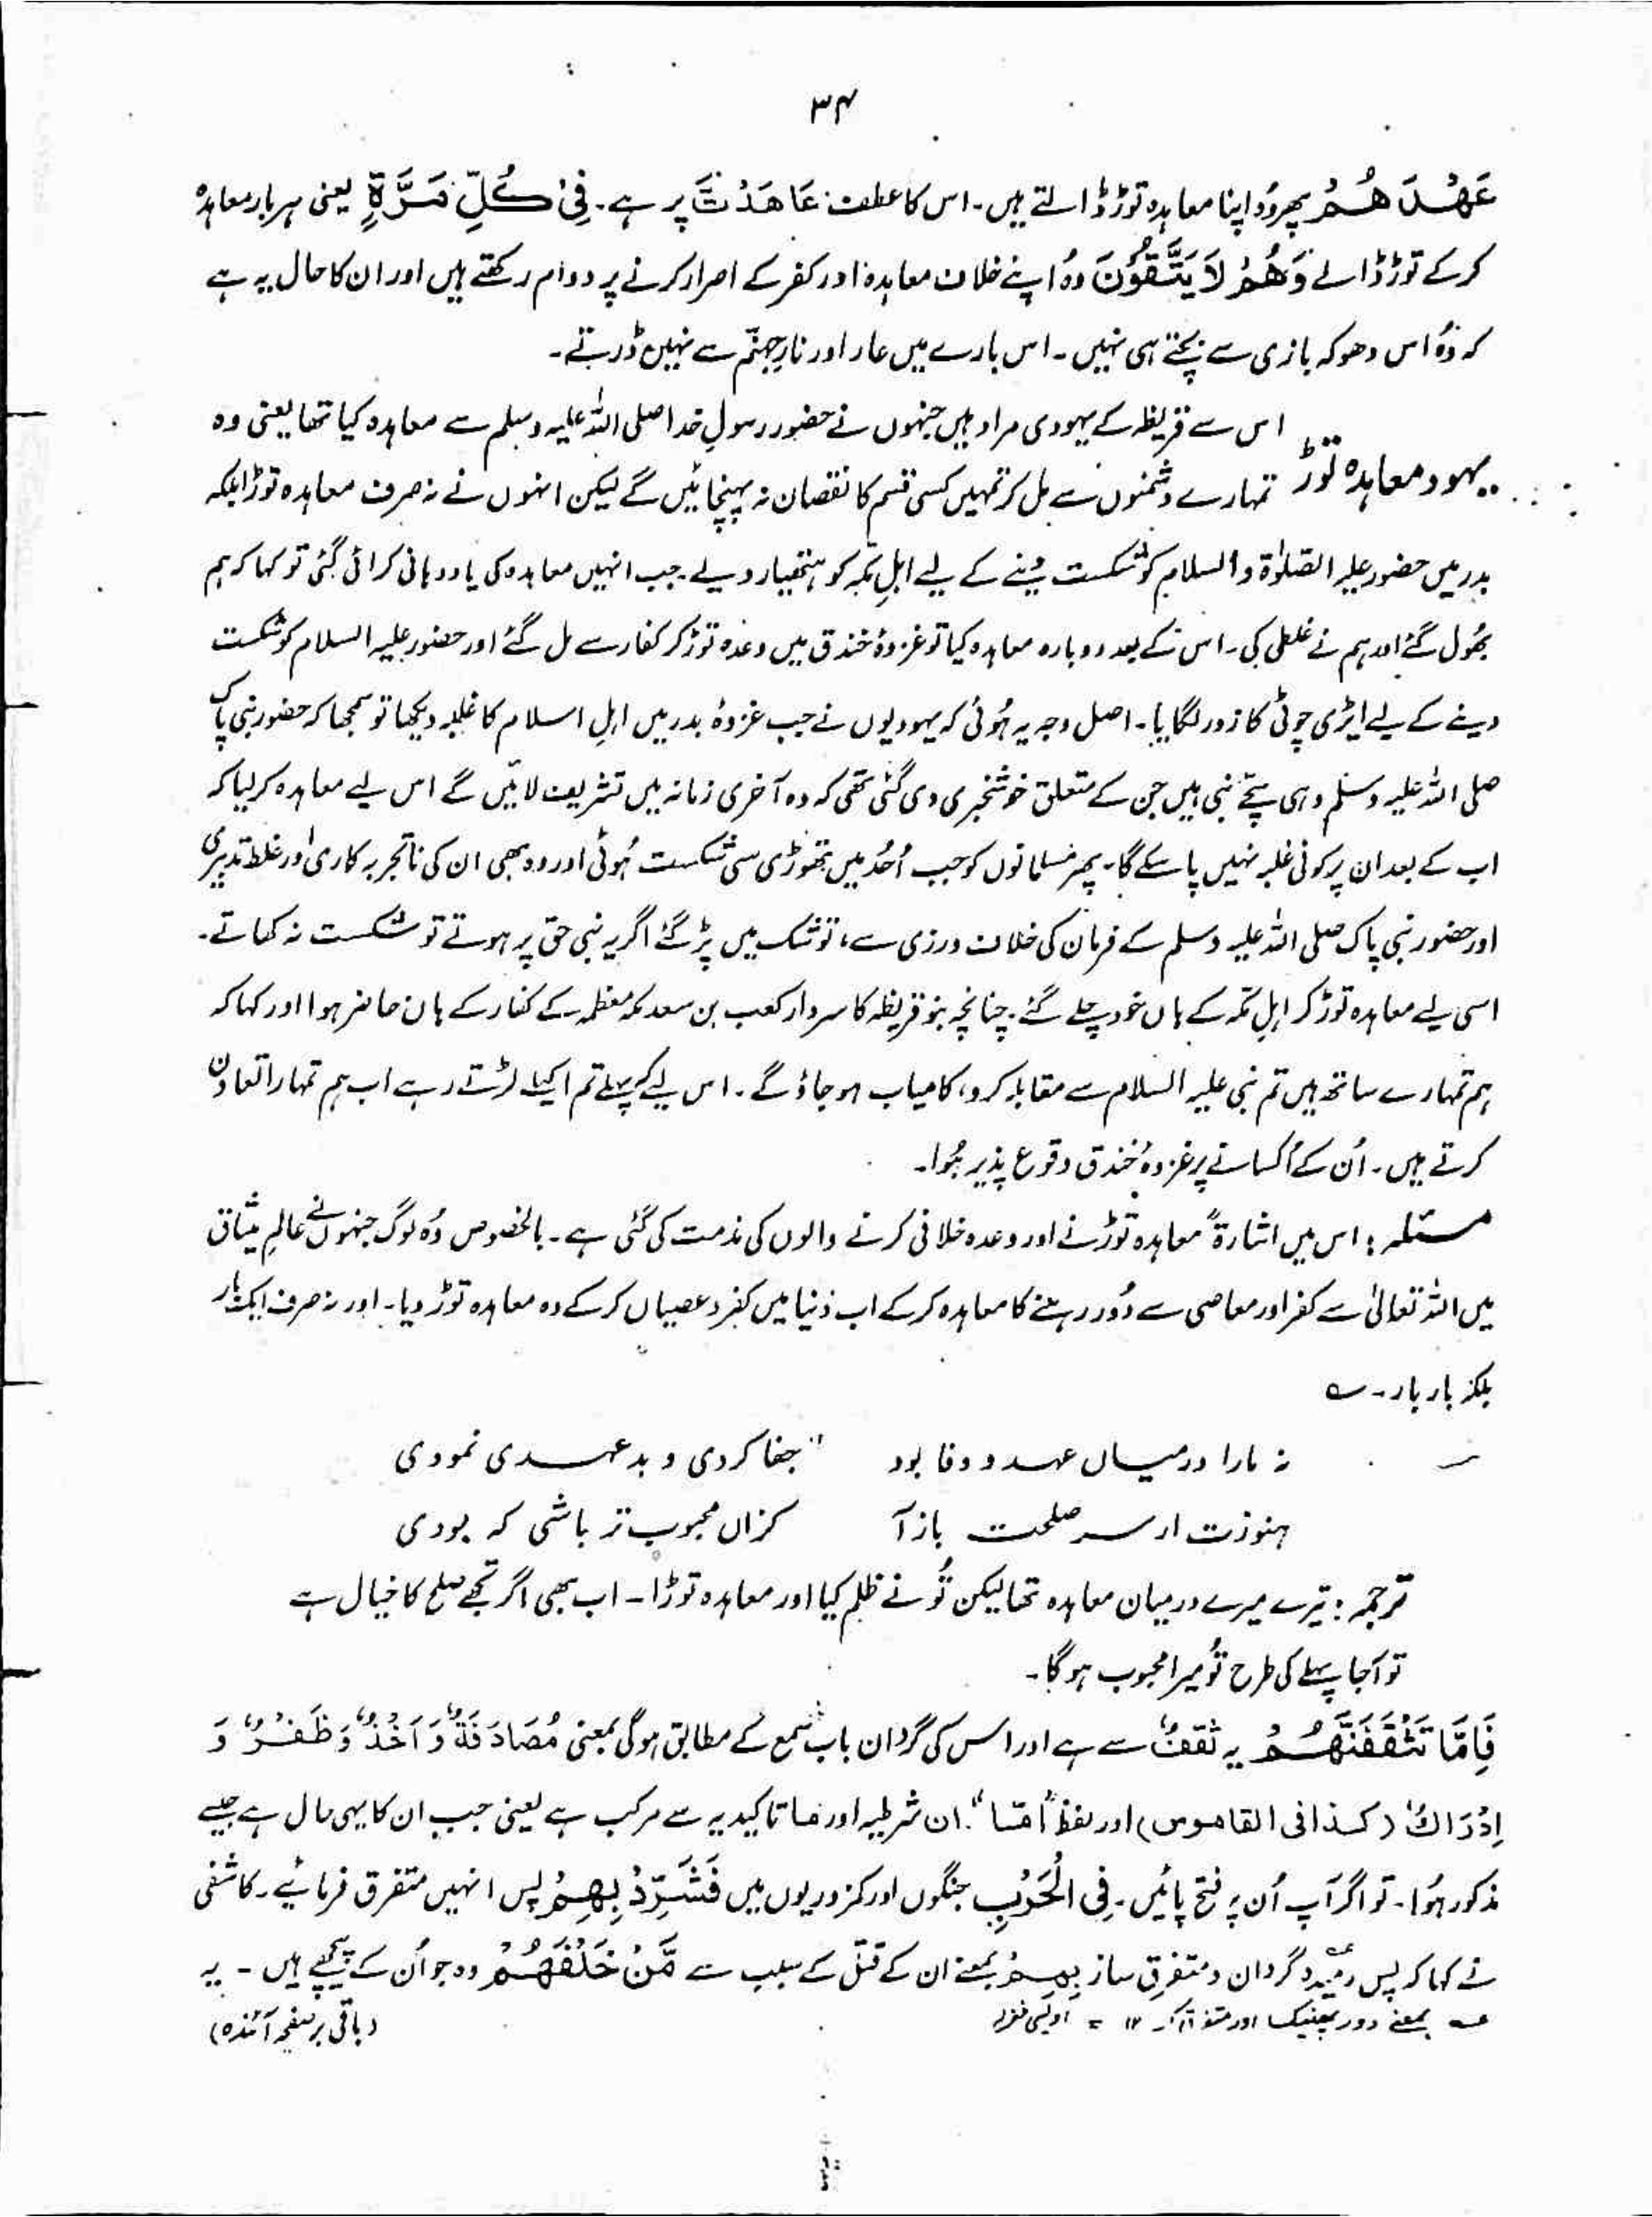 ۳۴
عَهْدَ هُمْ پھر وُہ اپنا معاہدہ توڑ ڈالتے ہیں۔ اس کا عطف عَاهَدْتَّ پر ہے۔ فِیْ کُلِّ مَرَّةٍ یعنی ہر بار معاہدہ
کر کے توڑ ڈالے وَهُمْ لَا یَتَّقُوْنَ وہ اپنے خلاف معاہدہ اور کفر کے اصرار کرنے پر دوام رکھتے ہیں اور ان کا حال یہ ہے
کہ وُہ اس دھوکہ بازی سے بچتے ہی نہیں۔ اس بارے میں عار اور نارِ جہنّم سے نہیں ڈرتے۔
اس سے قریظہ کے یہودی مراد ہیں جنہوں نے حضور رسولِ خدا صلی اللہ علیہ وسلم سے معاہدہ کیا تھا یعنی وہ
یہود معاہدہ توڑ تمہارے دشمنوں سے مل کر تمہیں کسی قسم کا نقصان نہ پہنچائیں گے لیکن انہوں نے نہ صرف معاہدہ توڑا بلکہ
بدر میں حضور علیہ الصّلوٰۃ والسلام کو شکست دینے کے لیے اہلِ مکہ کو ہتھیار دیے۔ جب انہیں معاہدہ کی یاد دہانی کرائی گئی تو کہا کہ ہم
بھُول گئے اور ہم نے غلطی کی۔ اس کے بعد دوبارہ معاہدہ کیا تو غزوۂ خندق میں وعدہ توڑ کر کفار سے مل گئے اور حضور علیہ السلام کو شکست
دینے کے لیے ایڑی چوٹی کا زور لگایا۔ اصل وجہ یہ ہُوئی کہ یہودیوں نے جب غزوۂ بدر میں اہلِ اسلام کا غلبہ دیکھا تو سمجھا کہ حضور نبی پاک
صلی اللہ علیہ وسلم وہی سچّے نبی ہیں جن کے متعلق خوشخبری دی گئی تھی کہ وہ آخری زمانہ میں تشریف لائیں گے اس لیے معاہدہ کر لیا کہ
اب کے بعد ان پر کوئی غلبہ نہیں پا سکے گا۔ پھر مسلمانوں کو جب اُحُد میں تھوڑی سی شکست ہُوئی اور وہ بھی ان کی ناتجربہ کاری اور غلط تدبیری
اور حضور نبی پاک صلی اللہ علیہ وسلم کے فرمان کی خلاف ورزی سے، تو شک میں پڑ گئے اگر یہ نبی حق پر ہوتے تو شکست نہ کھاتے۔
اسی لیے معاہدہ توڑ کر اہلِ مکہ کے ہاں خود چلے گئے۔ چنانچہ بنو قریظہ کا سردار کعب بن سعد مکہ معظمہ کے کفار کے ہاں حاضر ہوا اور کہا کہ
ہم تمہارے ساتھ ہیں تم نبی علیہ السلام سے مقابلہ کرو، کامیاب ہو جاؤ گے۔ اس لیے کہ پہلے تم اکیلے لڑتے رہے اب ہم تمہارا تعاون
کرتے ہیں۔ اُن کے اُکسانے پر غزوۂ خندق وقوع پذیر ہُوا۔
مسئلہ: اس میں اشارۃً معاہدہ توڑنے اور وعدہ خلافی کرنے والوں کی مذمت کی گئی ہے۔ بالخصوص وُہ لوگ جنہوں نے عالمِ میثاق
میں اللہ تعالیٰ سے کفر اور معاصی سے دُور رہنے کا معاہدہ کر کے اب دُنیا میں کفر و عصیاں کر کے وہ معاہدہ توڑ دیا۔ اور نہ صرف ایک بار
بلکہ بار بار۔ ؎
نہ مارا درمیاں عہد و وفا بود جفا کردی و بد عہدی نمودی
ہنوزت ار سر صلحت باز آ کزاں محبوب تر باشی کہ بودی
ترجمہ: تیرے میرے درمیان معاہدہ تھا لیکن تُو نے ظلم کیا اور معاہدہ توڑا۔ اب بھی اگر تجھے صلح کا خیال ہے
تو آجا پہلے کی طرح تُو میرا محبوب ہوگا۔
فَاِمَّا تَثْقَفَنَّهُمْ یہ ثقفٌ سے ہے اور اس کی گردان باب سمع کے مطابق ہوگی بمعنی مُصَادَفَةٌ وَ اَخْذٌ وَ ظَفَرٌ وَ
اِدْرَاكٌ (کذا فی القاموس) اور لفظ "اِمّا" ان شرطیہ اور ما تاکیدیہ سے مرکب ہے یعنی جب ان کا یہی حال ہے جیسے
مذکور ہُوا۔ تو اگر آپ اُن پر فتح پائیں۔ فِی الْحَرْبِ جنگوں اور کمزوریوں میں فَشَرِّدْ بِهِمْ پس انہیں متفرق فرمائیے۔ کاشفی
نے کہا کہ پس رمیدہ گردان و متفرق ساز بِهِمْ بمعنے ان کے قتل کے سبب سے مَّنْ خَلْفَهُمْ وہ جو اُن کے پیچھے ہیں۔ یہ
؎ بمعنے دور پھینک اور متفرق کر ۱۲ = اویسی غفرلہ (باقی بر صفحہ آئندہ)